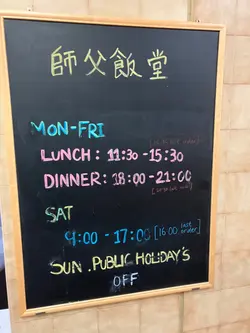 師父飯堂
MON-FRI
LUNCH: 11:30 -15:30
DINNER: 18:00 -21:00
SAT
9:00 - 17:00 [16:00 last order]
SUN. PUBLIC HOLIDAY'S
OFF